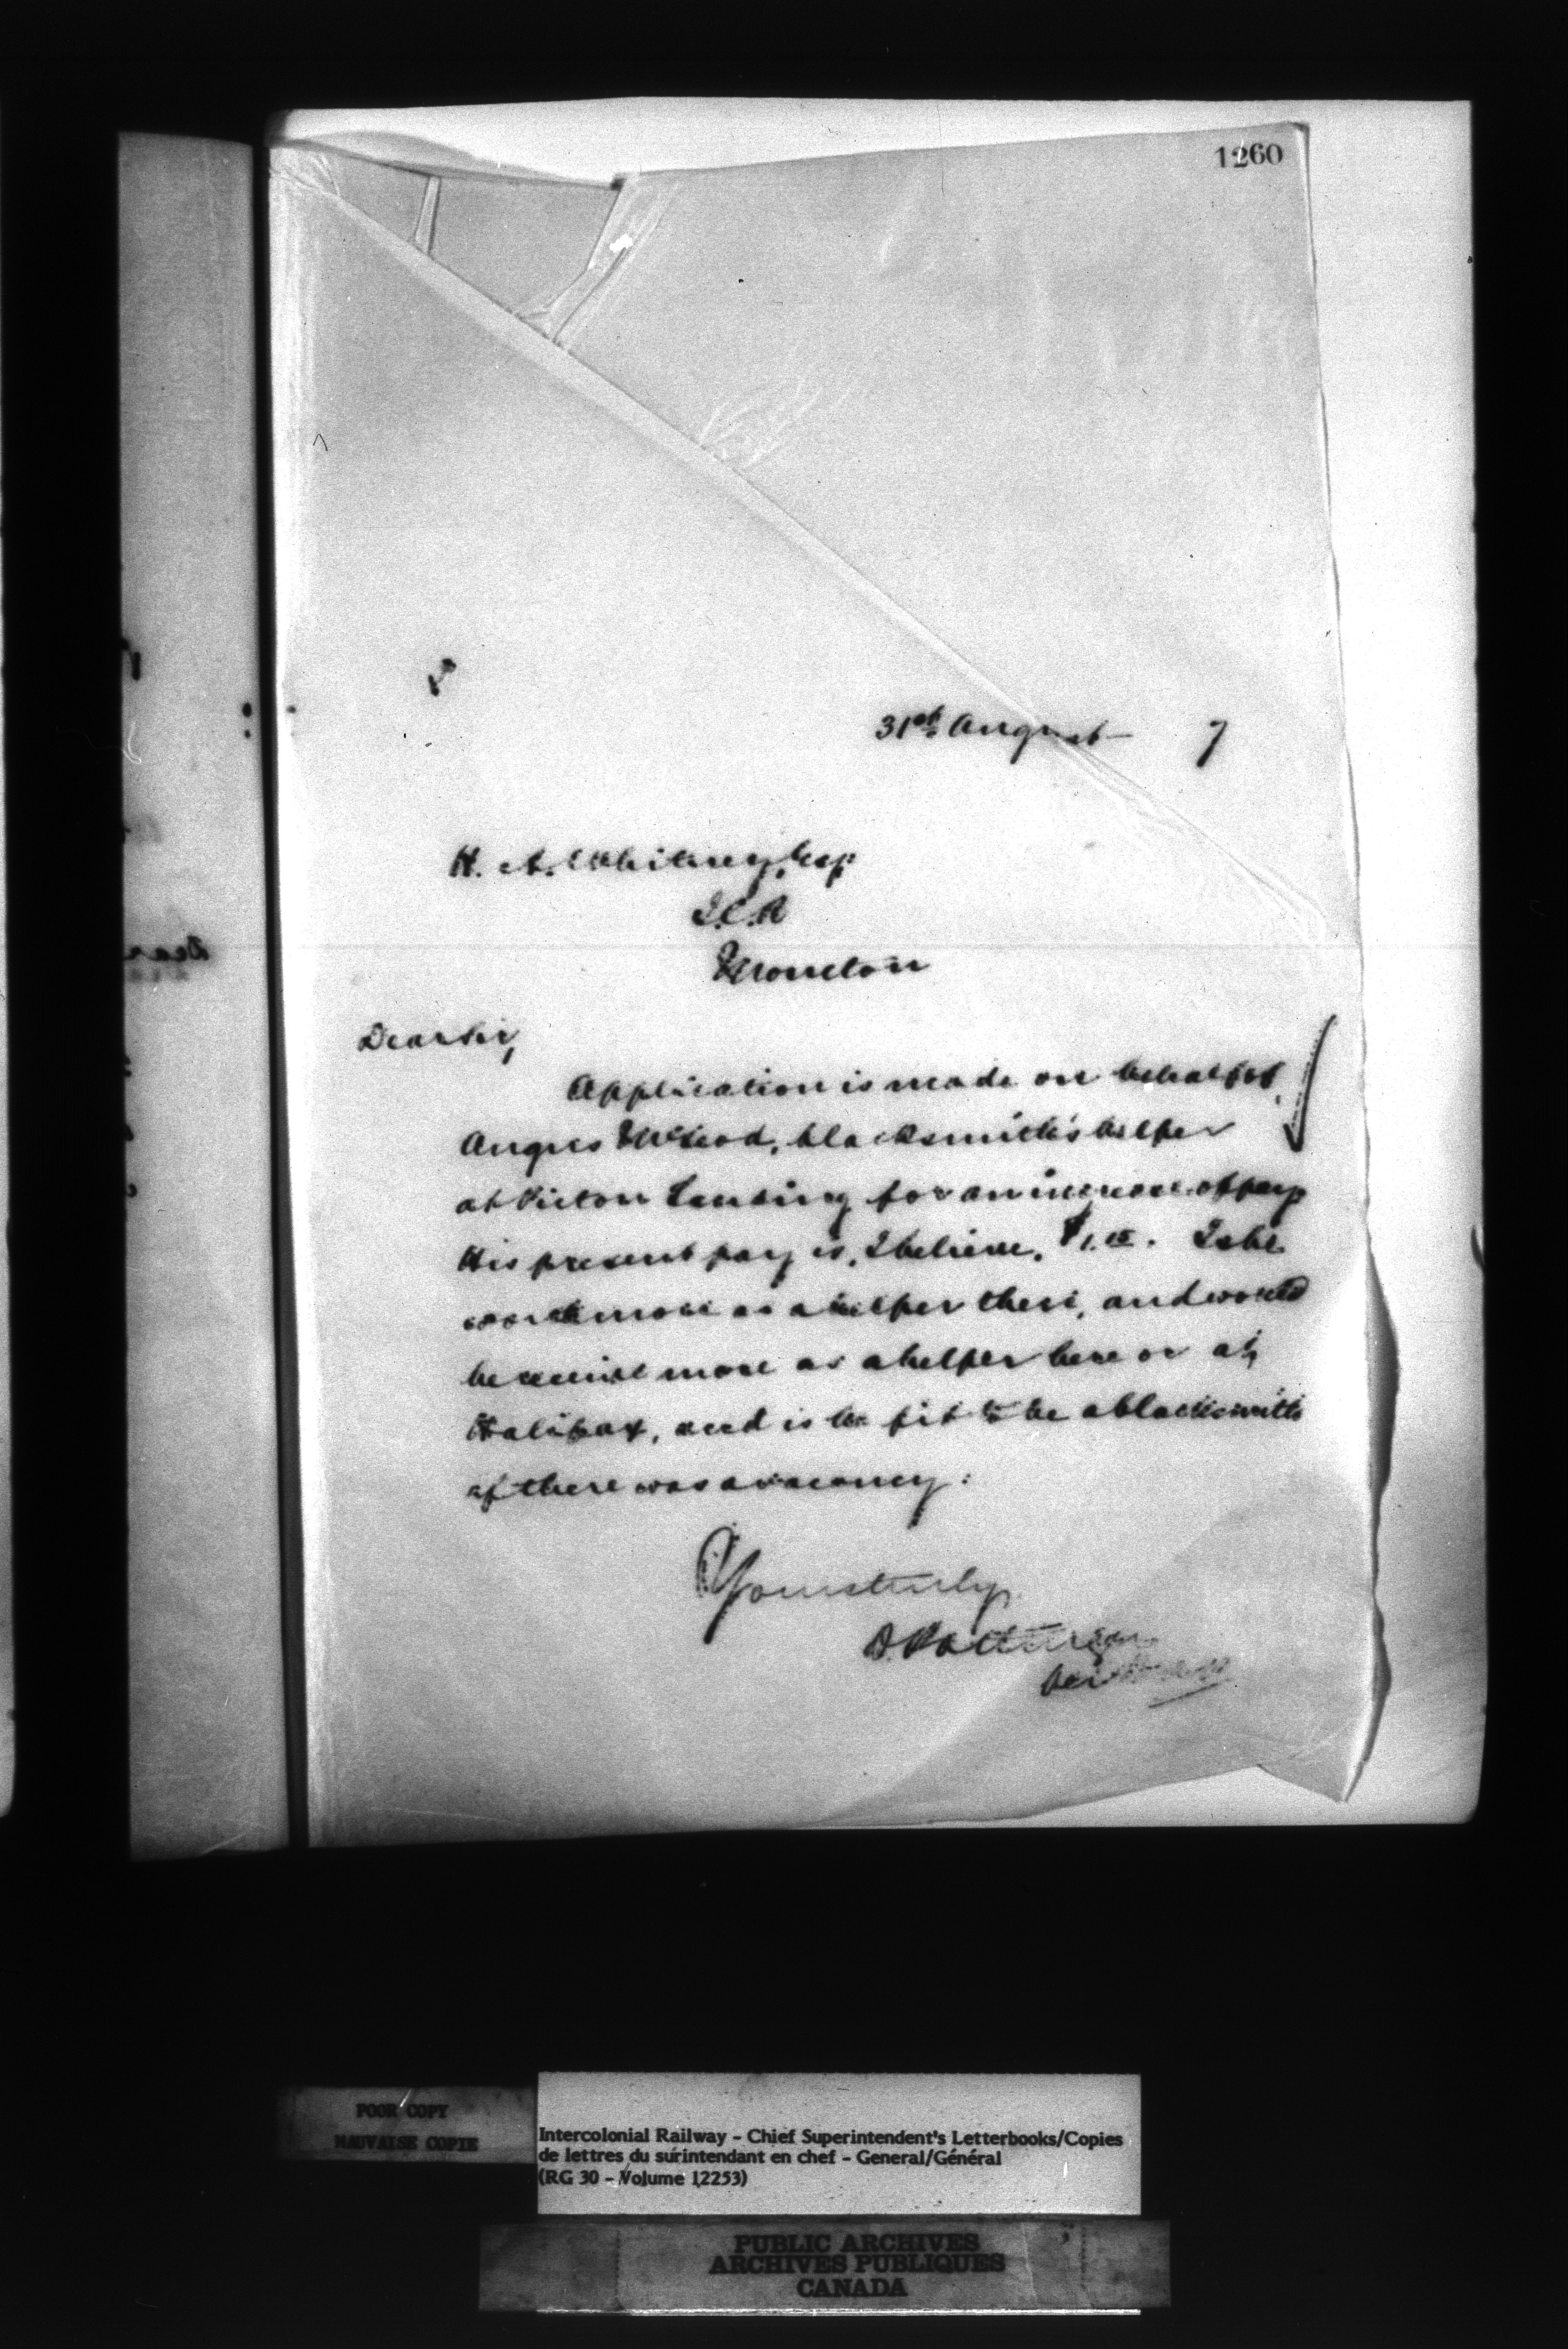 1260
31st August 7
H. A. Whitney, Esq
I.C.R
Moncton
Dear Sir,
Application is made on behalf of
Angus McLeod, blacksmith's helper
at Pictou Landing for an increase of pay
His present pay is, I believe, $1.15. Is he
worth more as a helper there, and would
he receive more as a helper here or at
Halifax, and is he fit to be a blacksmith
if there was a vacancy:
Yours truly
D. Pottinger
POOR COPY
MAUVAISE COPIE
Intercolonial Railway - Chief Superintendent's Letterbooks/Copies
de lettres du surintendant en chef - General/Général
(RG 30 - Volume 12253)
PUBLIC ARCHIVES
ARCHIVES PUBLIQUES
CANADA